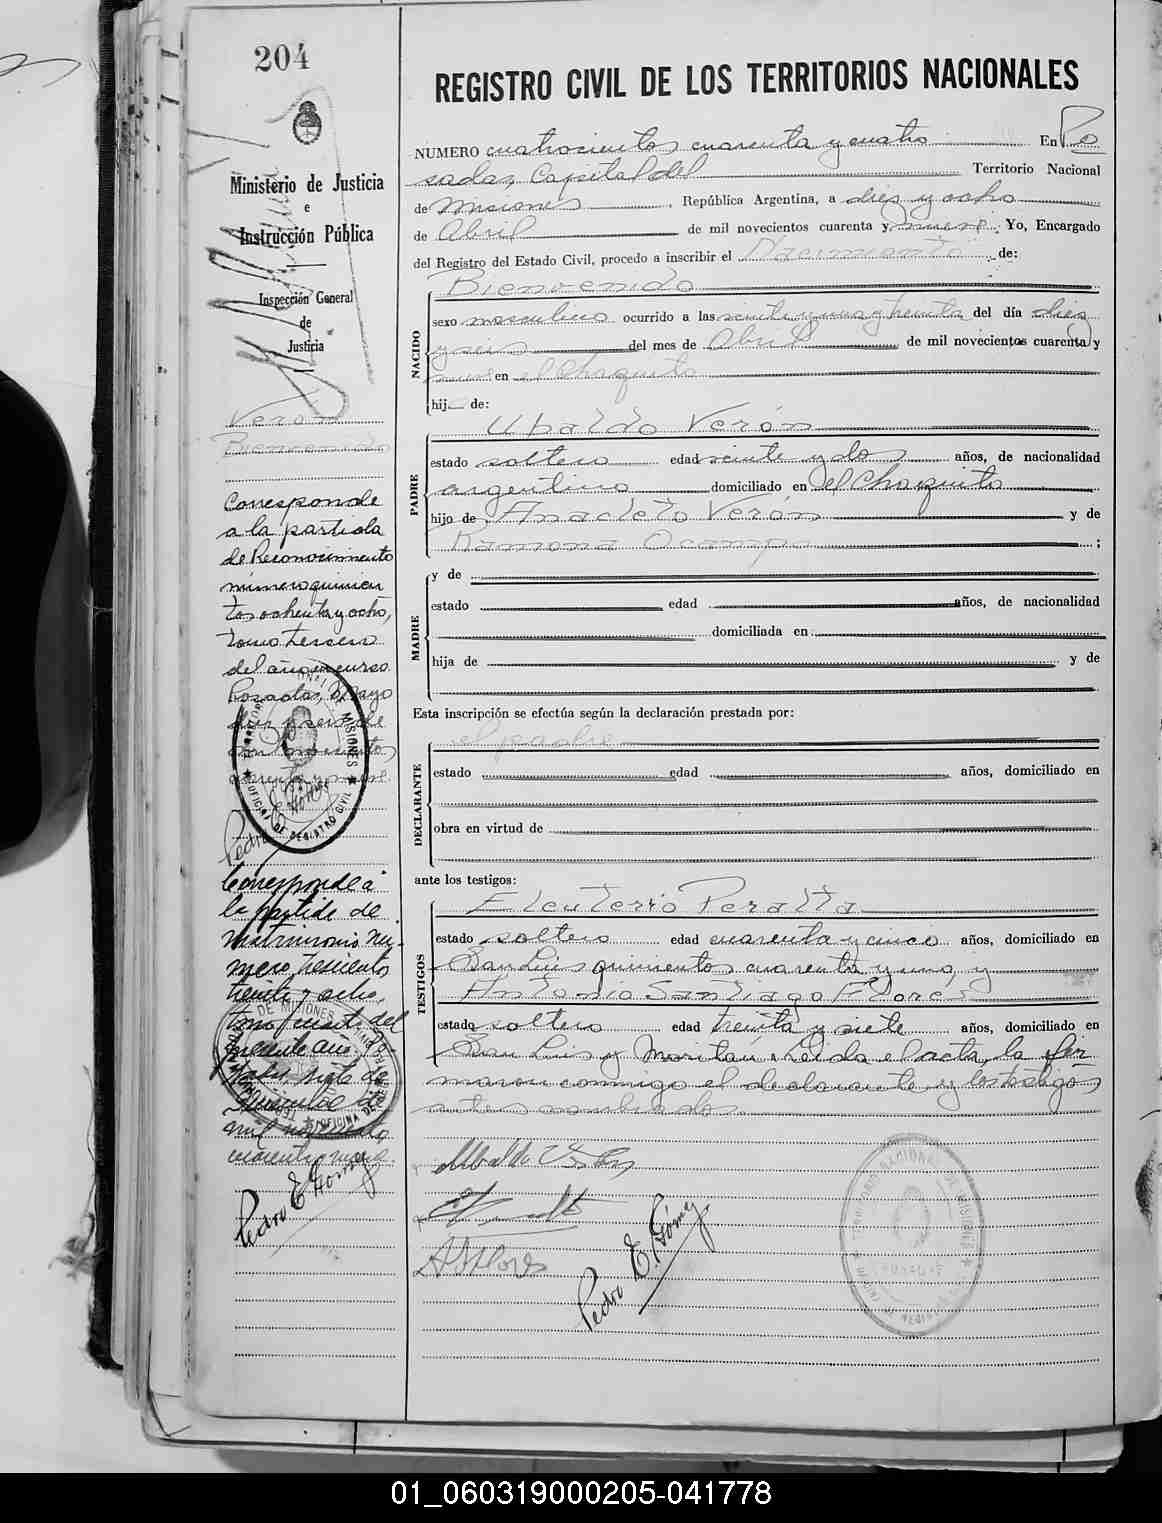 204
Ministerio de Justicia
e
Instrucción Pública
Inspección General
de
Justicia
Verón
Bienvenido
Corresponde
a la partida
de Reconocimiento
número quinien
tos ochenta y ocho,
tomo tercero
del año en curso
Posadas, Mayo
diez y seis de
mil novecientos
cuarenta y nueve.
OFICINA DE REGISTRO CIVIL
MISIONES
Pedro E. Gómez
Corresponde a
la partida de
matrimonio nú-
mero trescientos
treinta y ocho,
tomo del
presente año,
siete de
de
mil novecientos
cuarenta y nueve.
Pedro E. Gómez
REGISTRO CIVIL DE LOS TERRITORIOS NACIONALES
NUMERO cuatrocientos cuarenta y cuatro En Po
sadas, Capital del Territorio Nacional
de Misiones, República Argentina, a diez y ocho
de Abril de mil novecientos cuarenta y nueve. Yo, Encargado
del Registro del Estado Civil, procedo a inscribir el Nacimiento de:
Bienvenido
NACIDO
sexo masculino ocurrido a las veinte y una y treinta del día diez
y seis del mes de Abril de mil novecientos cuarenta y
nueve en el Chaquito
hij de:
PADRE
Ubaldo Verón
estado soltero edad veinte y dos años, de nacionalidad
argentino domiciliado en el Chaquito
hijo de Anacleto Verón y de
Ramona Ocampo;
MADRE
y de
estado edad años, de nacionalidad
domiciliada en
hija de y de
Esta inscripción se efectúa según la declaración prestada por:
DECLARANTE
el padre
estado edad años, domiciliado en
obra en virtud de
ante los testigos:
TESTIGOS
Eleuterio Peralta
estado soltero edad cuarenta y cinco años, domiciliado en
San Luis quinientos cuarenta y uno y
Antonio Santiago Flores
estado soltero edad treinta y siete años, domiciliado en
San Luis y Moritán. Leida el acta, la fir
maron conmigo el declarante y los testigos
antes nombrados
Ubaldo Verón
A S Flores
Pedro E. Gómez
TERRITORIO NACIONAL DE MISIONES
OFICINA DE REGISTRO CIVIL
01_060319000205-041778